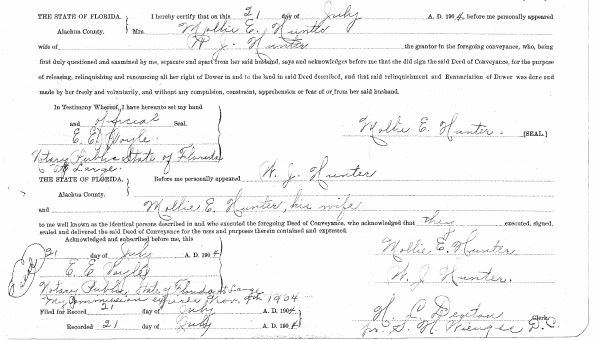 THE STATE OF FLORIDA. I hereby certify that on this 21 day of July A. D. 1904, before me personally appeared
Alachua County. Mrs. Mollie E. Hunter
wife of W. J. Hunter the grantor in the foregoing conveyance, who, being
first duly questioned and examined by me, separate and apart from her said husband, says and acknowledges before me that she did sign the said Deed of Conveyance, for the purpose
of releasing, relinquishing and renouncing all her right of Dower in and to the land in said Deed described, and that said relinquishment and Renunciation of Dower was done and
made by her freely and voluntarily, and without any compulsion, constraint, apprehension or fear of or from her said husband.
In Testimony Whereof, I have hereunto set my hand
and official Seal.
E. E. Voyle. Mollie E. Hunter. [SEAL]
Notary Public State of Florida
at Large.
THE STATE OF FLORIDA. Before me personally appeared W. J. Hunter
Alachua County.
and Mollie E. Hunter, his wife
to me well known as the identical persons described in and who executed the foregoing Deed of Conveyance, who acknowledged that they executed, signed,
sealed and delivered the said Deed of Conveyance for the uses and purposes therein contained and expressed.
Acknowledged and subscribed before me, this
21 day of July A. D. 1904 Mollie E. Hunter
E. E. Voyle W. J. Hunter.
Notary Public, State of Florida at Large
My Commission expires Nov. 1904
Filed for Record 21 day of July A. D. 1904
H. C. Denton Clerk
Recorded 21 day of July A. D. 1904 for S. H. Wienges D.C.